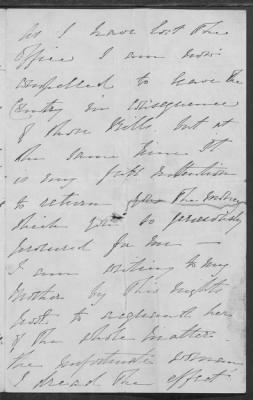 As I have lost the
office I am now
compelled to leave the
Country in consequence
of those Bills. but at
the same time it
is my full intention
to return the money
which you so generously
procured for me —
I am writing to my
Mother by this nights
post to acquaint her
of the whole matter.
the unfortunate woman
I dread the effect